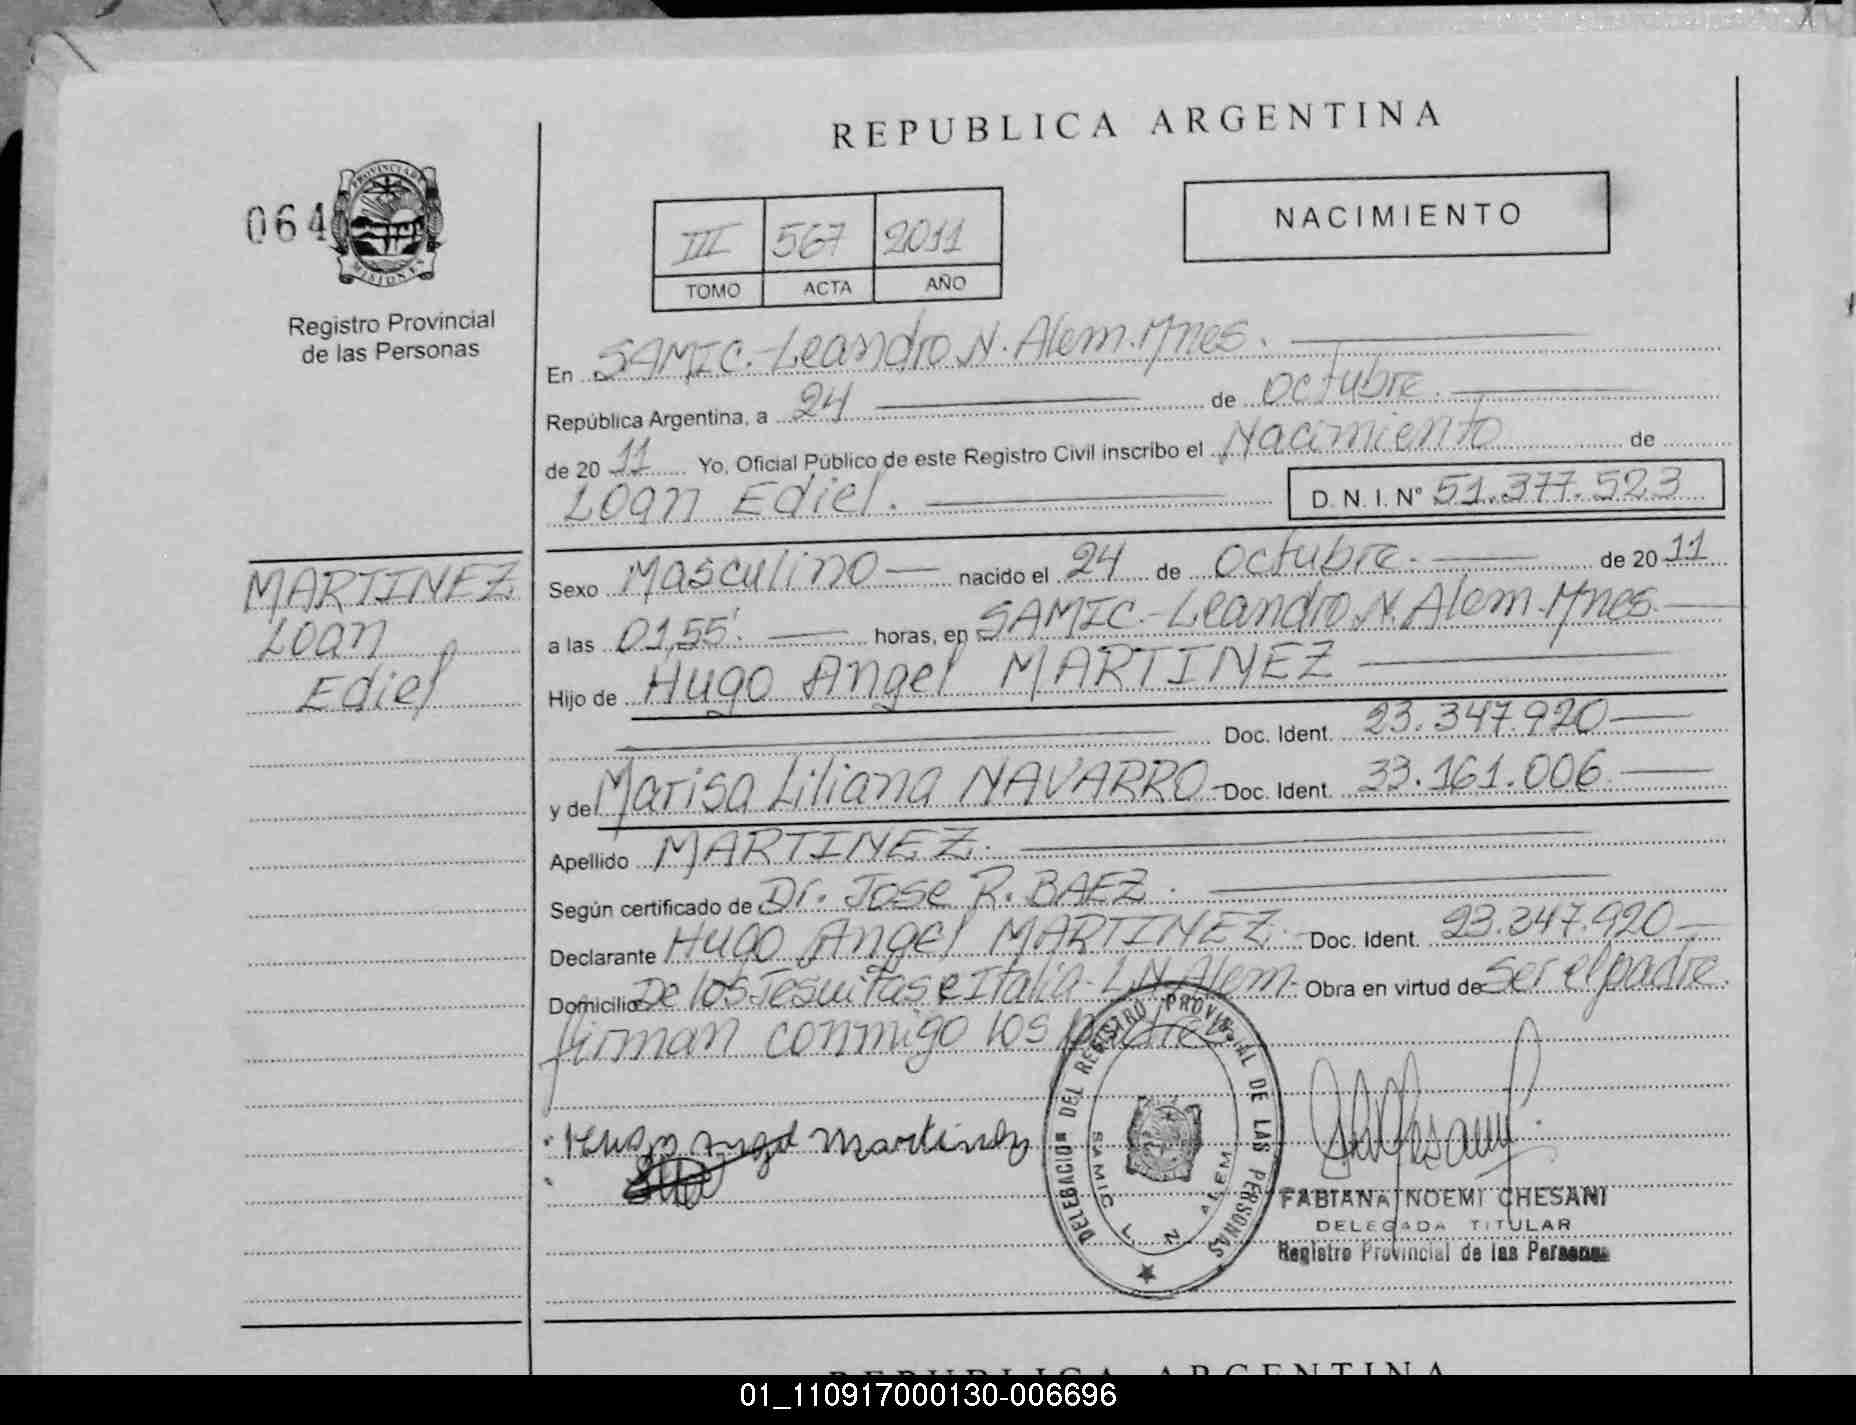 REPUBLICA ARGENTINA
064
PROVINCIA DE
MISIONES
Registro Provincial
de las Personas
III 567 2011
TOMO ACTA AÑO
NACIMIENTO
En SAMIC.-Leandro N. Alem. Mnes.
República Argentina, a 24 de octubre.
de 20 11 Yo, Oficial Público de este Registro Civil inscribo el Nacimiento de
Loan Ediel. D. N. I. N° 51.377.523
MARTINEZ
Loan
Ediel
Sexo Masculino nacido el 24 de octubre. de 20 11
a las 01,55'. horas, en SAMIC.-Leandro N. Alem. Mnes.
Hijo de Hugo Angel MARTINEZ
Doc. Ident. 23.347.920
y de Marisa Liliana NAVARRO Doc. Ident. 33.161.006
Apellido MARTINEZ.
Según certificado de Dr. Jose R. BAEZ.
Declarante Hugo Angel MARTINEZ. Doc. Ident. 23.347.920
Domicilio De los Jesuitas e Italia-L.N. Alem- Obra en virtud de Ser el padre.
firman conmigo los padres
Hugo Angel Martinez
DELEGACION DEL REGISTRO PROVINCIAL DE LAS PERSONAS
SAMIC L N ALEM
FABIANA NOEMI CHESANI
DELEGADA TITULAR
Registro Provincial de las Personas
REPUBLICA ARGENTINA
01_110917000130-006696